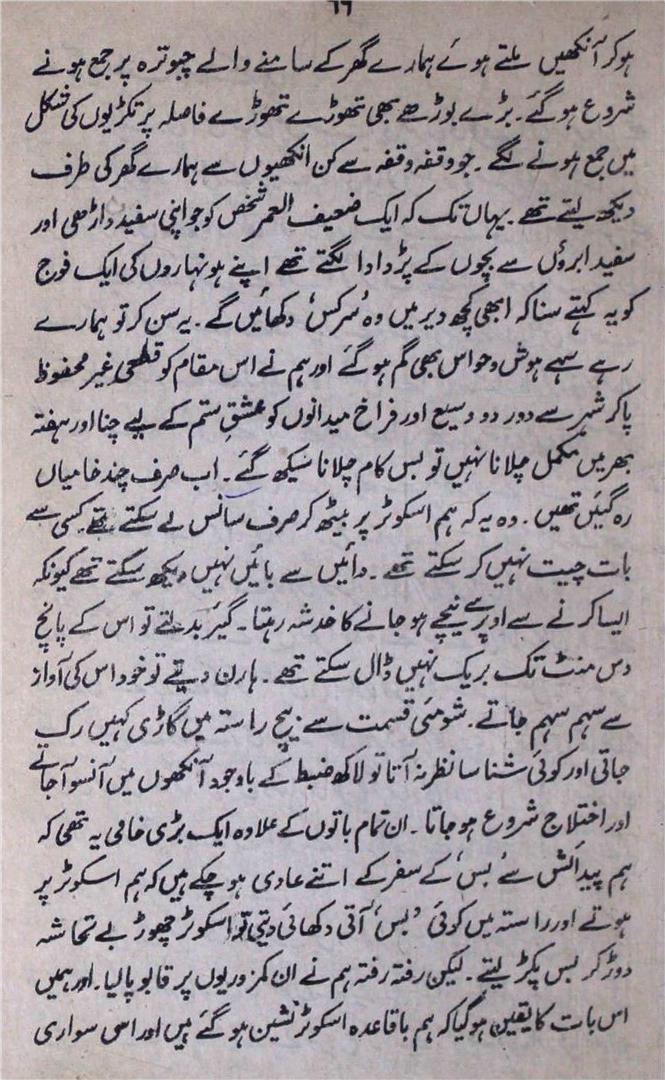 ٦٦
ہوکر آنکھیں ملتے ہوئے ہمارے گھر کے سامنے والے چبوترہ پر جمع ہونے
شروع ہوگئے۔ بڑے بوڑھے بھی تھوڑے تھوڑے فاصلہ پر ٹکڑیوں کی شکل
میں جمع ہونے لگے۔ جو وقفہ وقفہ سے کن انکھیوں سے ہمارے گھر کی طرف
دیکھ لیتے تھے۔ یہاں تک کہ ایک ضعیف العمر شخص کو جو اپنی سفید داڑھی اور
سفید ابروؤں سے بچوں کے پڑدادا لگتے تھے اپنے ہونہاروں کی ایک فوج
کو یہ کہتے سنا کہ ابھی کچھ دیر میں وہ 'سرکس' دکھائیں گے۔ یہ سن کر تو ہمارے
رہے سہے ہوش و حواس بھی گم ہوگئے اور ہم نے اس مقام کو قطعی غیر محفوظ
پاکر شہر سے دور دو وسیع اور فراخ میدانوں کو عشقِ ستم کے لیے چنا اور ہفتہ
بھر میں مکمل چلانا نہیں تو بس کام چلانا سیکھ گئے۔ اب صرف چند خامیاں
رہ گئیں تھیں۔ وہ یہ کہ ہم اسکوٹر پر بیٹھ کر صرف سانس لے سکتے تھے کسی سے
بات چیت نہیں کر سکتے تھے۔ دائیں سے بائیں نہیں دیکھ سکتے تھے کیونکہ
ایسا کرنے سے اوپر سے نیچے ہو جانے کا خدشہ رہتا۔ گیر بدلتے تو اس کے پانچ
دس منٹ تک بریک نہیں ڈال سکتے تھے۔ ہارن دیتے تو خود اس کی آواز
سے سہم سہم جاتے۔ شومئی قسمت سے بیچ راستہ میں گاڑی کہیں رک
جاتی اور کوئی شناسا نظر نہ آتا تو لاکھ ضبط کے باوجود آنکھوں میں آنسو آجاتے
اور اختلاج شروع ہو جاتا۔ ان تمام باتوں کے علاوہ ایک بڑی خامی یہ تھی کہ
ہم پیدائش سے 'بس' کے سفر کے اتنے عادی ہو چکے ہیں کہ ہم اسکوٹر پر
ہوتے اور راستہ میں کوئی 'بس' آتی دکھائی دیتی تو اسکوٹر چھوڑ بے تحاشہ
دوڑ کر بس پکڑ لیتے۔ لیکن رفتہ رفتہ ہم نے ان کمزوریوں پر قابو پالیا۔ اور ہمیں
اس بات کا یقین ہوگیا کہ ہم باقاعدہ اسکوٹر نشین ہو گئے ہیں اور اسی سواری